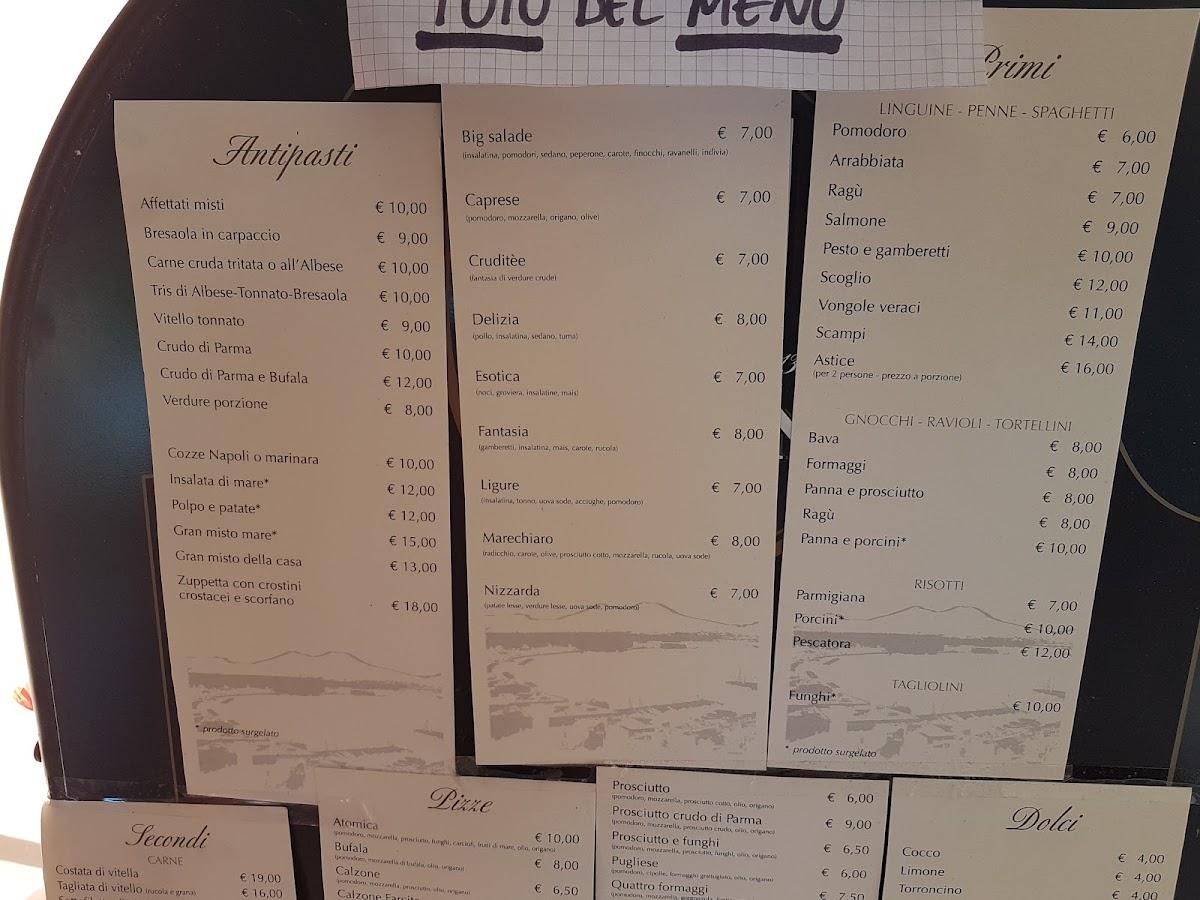 TUTO DEL MENÙ
Antipasti
Affettati misti € 10,00
Bresaola in carpaccio € 9,00
Carne cruda tritata o all'Albese € 10,00
Tris di Albese-Tonnato-Bresaola € 10,00
Vitello tonnato € 9,00
Crudo di Parma € 10,00
Crudo di Parma e Bufala € 12,00
Verdure porzione € 8,00
Cozze Napoli o marinara € 10,00
Insalata di mare* € 12,00
Polpo e patate* € 12,00
Gran misto mare* € 15,00
Gran misto della casa € 13,00
Zuppetta con crostini
crostacei e scorfano € 18,00
* prodotto surgelato
Big salade € 7,00
(insalatina, pomodori, sedano, peperone, carote, finocchi, ravanelli, indivia)
Caprese € 7,00
(pomodoro, mozzarella, origano, olive)
Cruditèe € 7,00
(fantasia di verdure crude)
Delizia € 8,00
(pollo, insalatina, sedano, tuma)
Esotica € 7,00
(noci, groviera, insalatine, mais)
Fantasia € 8,00
(gamberetti, insalatina, mais, carote, rucola)
Ligure € 7,00
(insalatina, tonno, uova sode, acciughe, pomodoro)
Marechiaro € 8,00
(radicchio, carote, olive, prosciutto cotto, mozzarella, rucola, uova sode)
Nizzarda € 7,00
(patate lesse, verdure lesse, uova sode, pomodoro)
Primi
LINGUINE - PENNE - SPAGHETTI
Pomodoro € 6,00
Arrabbiata € 7,00
Ragù € 7,00
Salmone € 9,00
Pesto e gamberetti € 10,00
Scoglio € 12,00
Vongole veraci € 11,00
Scampi € 14,00
Astice € 16,00
(per 2 persone - prezzo a porzione)
GNOCCHI - RAVIOLI - TORTELLINI
Bava € 8,00
Formaggi € 8,00
Panna e prosciutto € 8,00
Ragù € 8,00
Panna e porcini* € 10,00
RISOTTI
Parmigiana € 7,00
Porcini* € 10,00
Pescatora € 12,00
TAGLIOLINI
Funghi* € 10,00
* prodotto surgelato
Secondi
CARNE
Costata di vitella € 19,00
Tagliata di vitello (rucola e grana) € 16,00
Pizze
Atomica € 10,00
(pomodoro, mozzarella, prosciutto, funghi, carciofi, frutti di mare, olio, origano)
Bufala € 8,00
(pomodoro, mozzarella di bufala, olio, origano)
Calzone € 6,50
(pomodoro, mozzarella, prosciutto, olio, origano)
Calzone Farcito
Prosciutto € 6,00
(pomodoro, mozzarella, prosciutto cotto, olio, origano)
Prosciutto crudo di Parma € 9,00
(pomodoro, mozzarella, prosciutto crudo, olio, origano)
Prosciutto e funghi € 6,50
(pomodoro, mozzarella, prosciutto, funghi, olio, origano)
Pugliese € 6,00
(pomodoro, cipolle, formaggio grattugiato, olio, origano)
Quattro formaggi € 7,50
Dolci
Cocco € 4,00
Limone € 4,00
Torroncino € 4,00